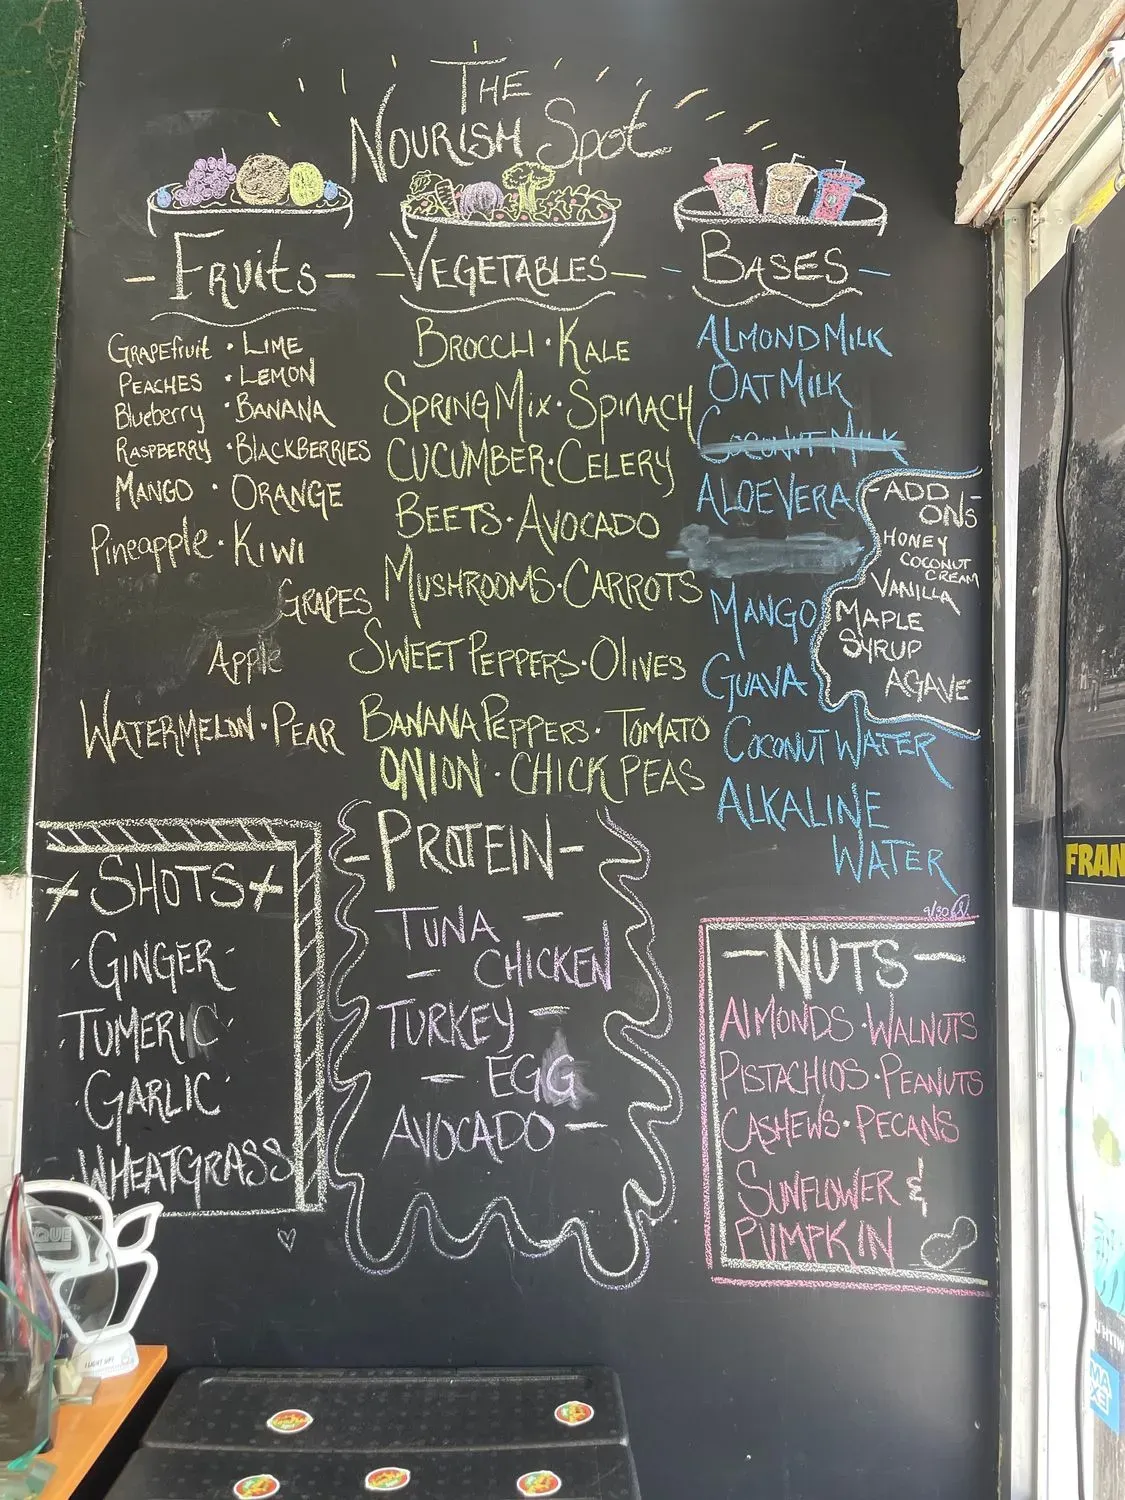 THE
NOURISH Spot
- FRUITS -
GRAPEfruit · LIME
PEACHES · LEMON
Blueberry · BANANA
RASPBERRY · BlACKBERRIES
MANGO · ORANGE
Pineapple · KIWI
GRAPES
Apple
WATERMELON · PEAR
- VEGETABLES -
BROCCLI · KALE
SPRING MIX · SPINACH
CUCUMBER · CELERY
BEETS · AVOCADO
MUSHROOMS · CARROTS
SWEET PEPPERS · OLIVES
BANANA PEPPERS · TOMATO
ONION · CHICK PEAS
- BASES -
ALMOND MILK
OAT MILK
COCONUT MILK
ALOE VERA
MANGO
GUAVA
COCONUT WATER
ALKALINE
WATER
- ADD -
ONS
HONEY
COCONUT
CREAM
VANILLA
MAPLE
SYRUP
AGAVE
SHOTS
· GINGER ·
TUMERIC ·
· GARLIC ·
· WHEATGRASS
- PROTEIN -
TUNA -
- CHICKEN
TURKEY -
- EGG
AVOCADO -
9/30
- NUTS -
AlMONDS · WALNUTS
PISTACHIOS · PEANUTS
CASHEWS · PECANS
SUNFLOWER &
PUMPKIN
FRAN